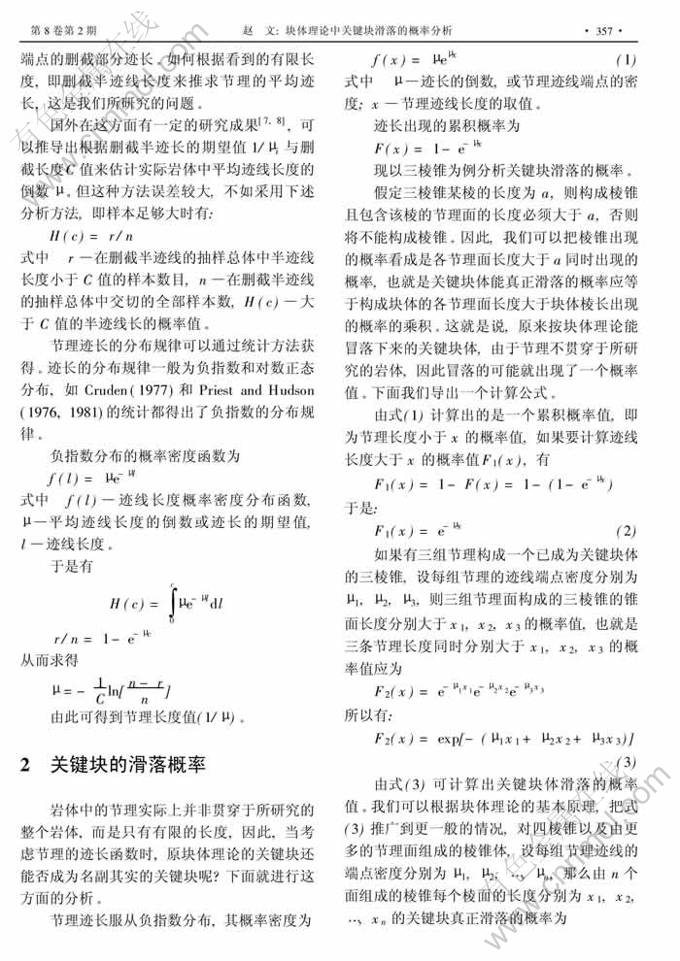 第 8 卷第 2 期 赵 文: 块体理论中关键块滑落的概率分析 · 357 ·
端点的删截部分迹长。如何根据看到的有限长
度, 即删截半迹线长度来推求节理的平均迹
长, 这是我们所研究的问题。
国外在这方面有一定的研究成果[7, 8], 可
以推导出根据删截半迹长的期望值 1/μ, 与删
截长度C 值来估计实际岩体中平均迹线长度的
倒数 μ。但这种方法误差较大, 不如采用下述
分析方法, 即样本足够大时有:
H(c) = r/n
式中 r —在删截半迹线的抽样总体中半迹线
长度小于 C 值的样本数目, n —在删截半迹线
的抽样总体中交切的全部样本数, H(c) —大
于 C 值的半迹线长的概率值。
节理迹长的分布规律可以通过统计方法获
得。迹长的分布规律一般为负指数和对数正态
分布, 如 Cruden(1977) 和 Priest and Hudson
(1976, 1981) 的统计都得出了负指数的分布规
律。
负指数分布的概率密度函数为
f(l) = μe^{-μl}
式中 f(l) —迹线长度概率密度分布函数,
μ—平均迹线长度的倒数或迹长的期望值,
l —迹线长度。
于是有
H(c) = ∫_0^c μe^{-μl}dl
r/n = 1- e^{-μc}
从而求得
μ= - \frac{1}{C}ln[\frac{n- r}{n}]
由此可得到节理长度值(1/μ)。
2 关键块的滑落概率
岩体中的节理实际上并非贯穿于所研究的
整个岩体, 而是只有有限的长度, 因此, 当考
虑节理的迹长函数时, 原块体理论的关键块还
能否成为名副其实的关键块呢? 下面就进行这
方面的分析。
节理迹长服从负指数分布, 其概率密度为
f(x) = μe^{μx} (1)
式中 μ—迹长的倒数, 或节理迹线端点的密
度; x —节理迹线长度的取值。
迹长出现的累积概率为
F(x) = 1- e^{-μx}
现以三棱锥为例分析关键块滑落的概率。
假定三棱锥某棱的长度为 a, 则构成棱锥
且包含该棱的节理面的长度必须大于 a, 否则
将不能构成棱锥。因此, 我们可以把棱锥出现
的概率看成是各节理面长度大于 a 同时出现的
概率, 也就是关键块体能真正滑落的概率应等
于构成块体的各节理面长度大于块体棱长出现
的概率的乘积。这就是说, 原来按块体理论能
冒落下来的关键块体, 由于节理不贯穿于所研
究的岩体, 因此冒落的可能就出现了一个概率
值。下面我们导出一个计算公式。
由式(1) 计算出的是一个累积概率值, 即
为节理长度小于 x 的概率值, 如果要计算迹线
长度大于 x 的概率值 F_1(x), 有
F_1(x) = 1- F(x) = 1- (1- e^{-μx})
于是:
F_1(x) = e^{-μx} (2)
如果有三组节理构成一个已成为关键块体
的三棱锥, 设每组节理的迹线端点密度分别为
μ_1, μ_2, μ_3, 则三组节理面构成的三棱锥的锥
面长度分别大于 x_1, x_2, x_3 的概率值, 也就是
三条节理长度同时分别大于 x_1, x_2, x_3 的概
率值应为
F_2(x) = e^{-μ_1x_1}e^{-μ_2x_2}e^{-μ_3x_3}
所以有:
F_2(x) = exp[- (μ_1x_1+ μ_2x_2+ μ_3x_3)]
(3)
由式(3) 可计算出关键块体滑落的概率
值。我们可以根据块体理论的基本原理, 把式
(3) 推广到更一般的情况, 对四棱锥以及由更
多的节理面组成的棱锥体, 设每组节理迹线的
端点密度分别为 μ_1, μ_2, …, μ_n, 那么由 n 个
面组成的棱锥每个棱面的长度分别为 x_1, x_2,
…, x_n 的关键块真正滑落的概率为
有色金属在线
www.cnnmol.com
有色金属在线
www.cnnmol.com